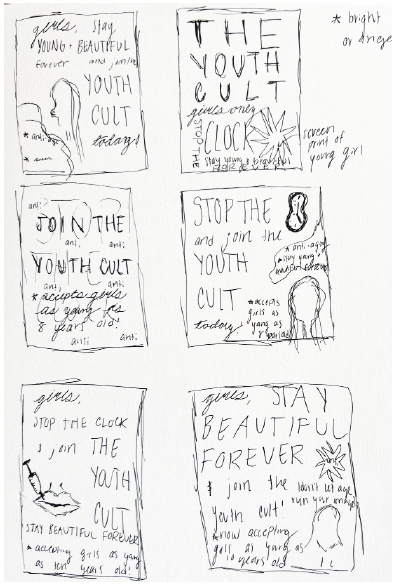 girls, stay
YOUNG & BEAUTIFUL
forever and join
YOUTH
CULT
today!
* anti-age
THE
YOUTH
CULT
girls only
STOP THE
CLOCK
stay young & beautiful
FOREVER
* bright
or dingy
screen
print of
young girl
anti
JOIN THE
anti anti
YOUTH CULT
anti anti
* accepts girls
as young as
8 years old!
anti anti
STOP THE
and join the
YOUTH
CULT
today
* anti-age
* stay young
* accepts
girls as
young as
8 years old
girls,
STOP THE CLOCK
& join THE
YOUTH
CULT
STAY BEAUTIFUL FOREVER
* accepting girls as young
as ten years old!
girls, STAY
BEAUTIFUL
FOREVER
& join the
youth cult!
(don't let age
ruin your
* now accepting
girls as young as
10 years old!